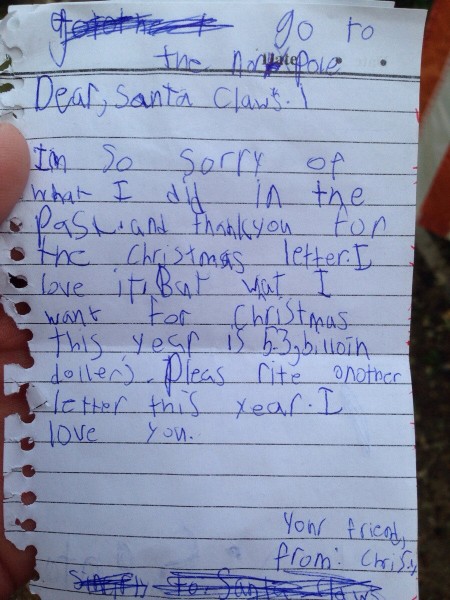 go to
the no pole
Date
Dear, santa claws.
Im so sorry of
what I did in the
past. and thankyou for
the christmas letter. I
love it. But wat I
want for christmas
this year is 53 billoin
dollers. Pleas rite another
letter this year. I
love you.
Your friend,
from: Chris
to Santa claws